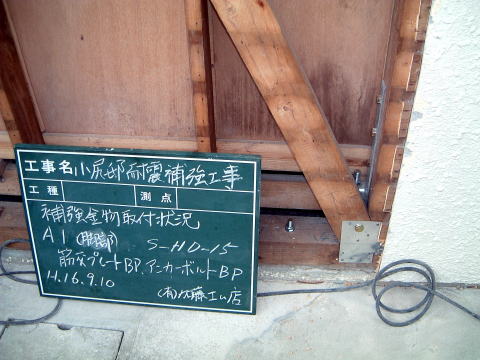 工事名 小尻邸耐震補強工事
工種 測点
補強金物取付状況
A1 (脚部) S-HD-15
筋交プレートBP、アンカーボルトBP
H.16.9.10
(有)佐藤工ム店